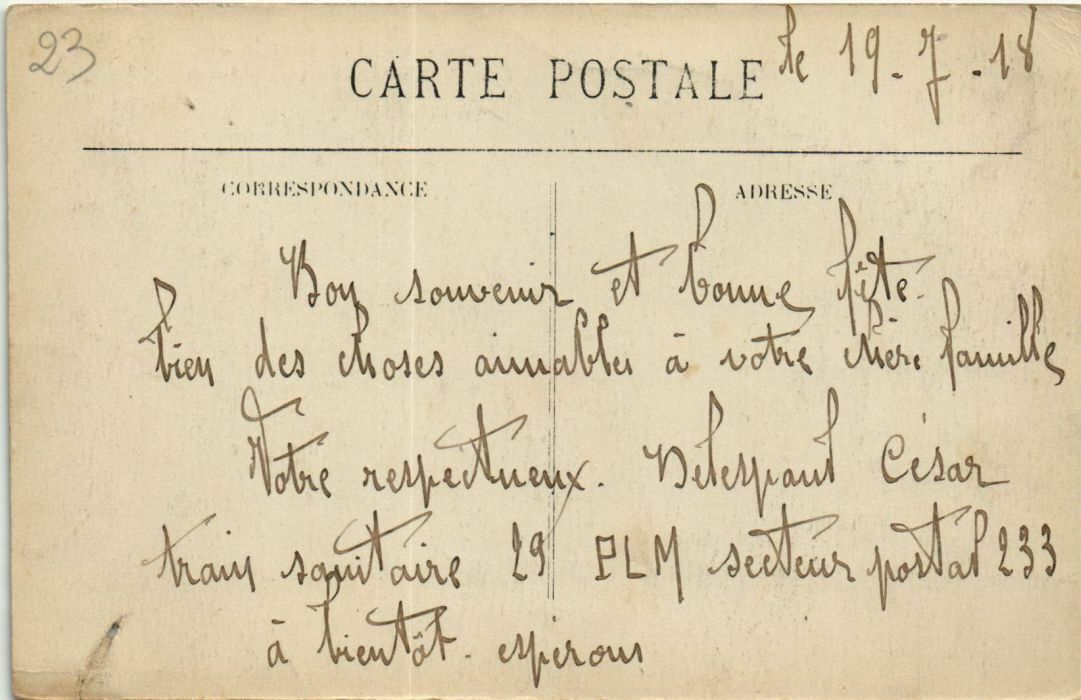 23
le 19-7-18
CARTE POSTALE
CORRESPONDANCE
ADRESSE
Bon souvenir et bonne fête.
bien des choses aimables à votre chère famille
Votre respectueux. Delespaul César
train sanitaire 29 PLM secteur postal 233
à bientôt. espérons